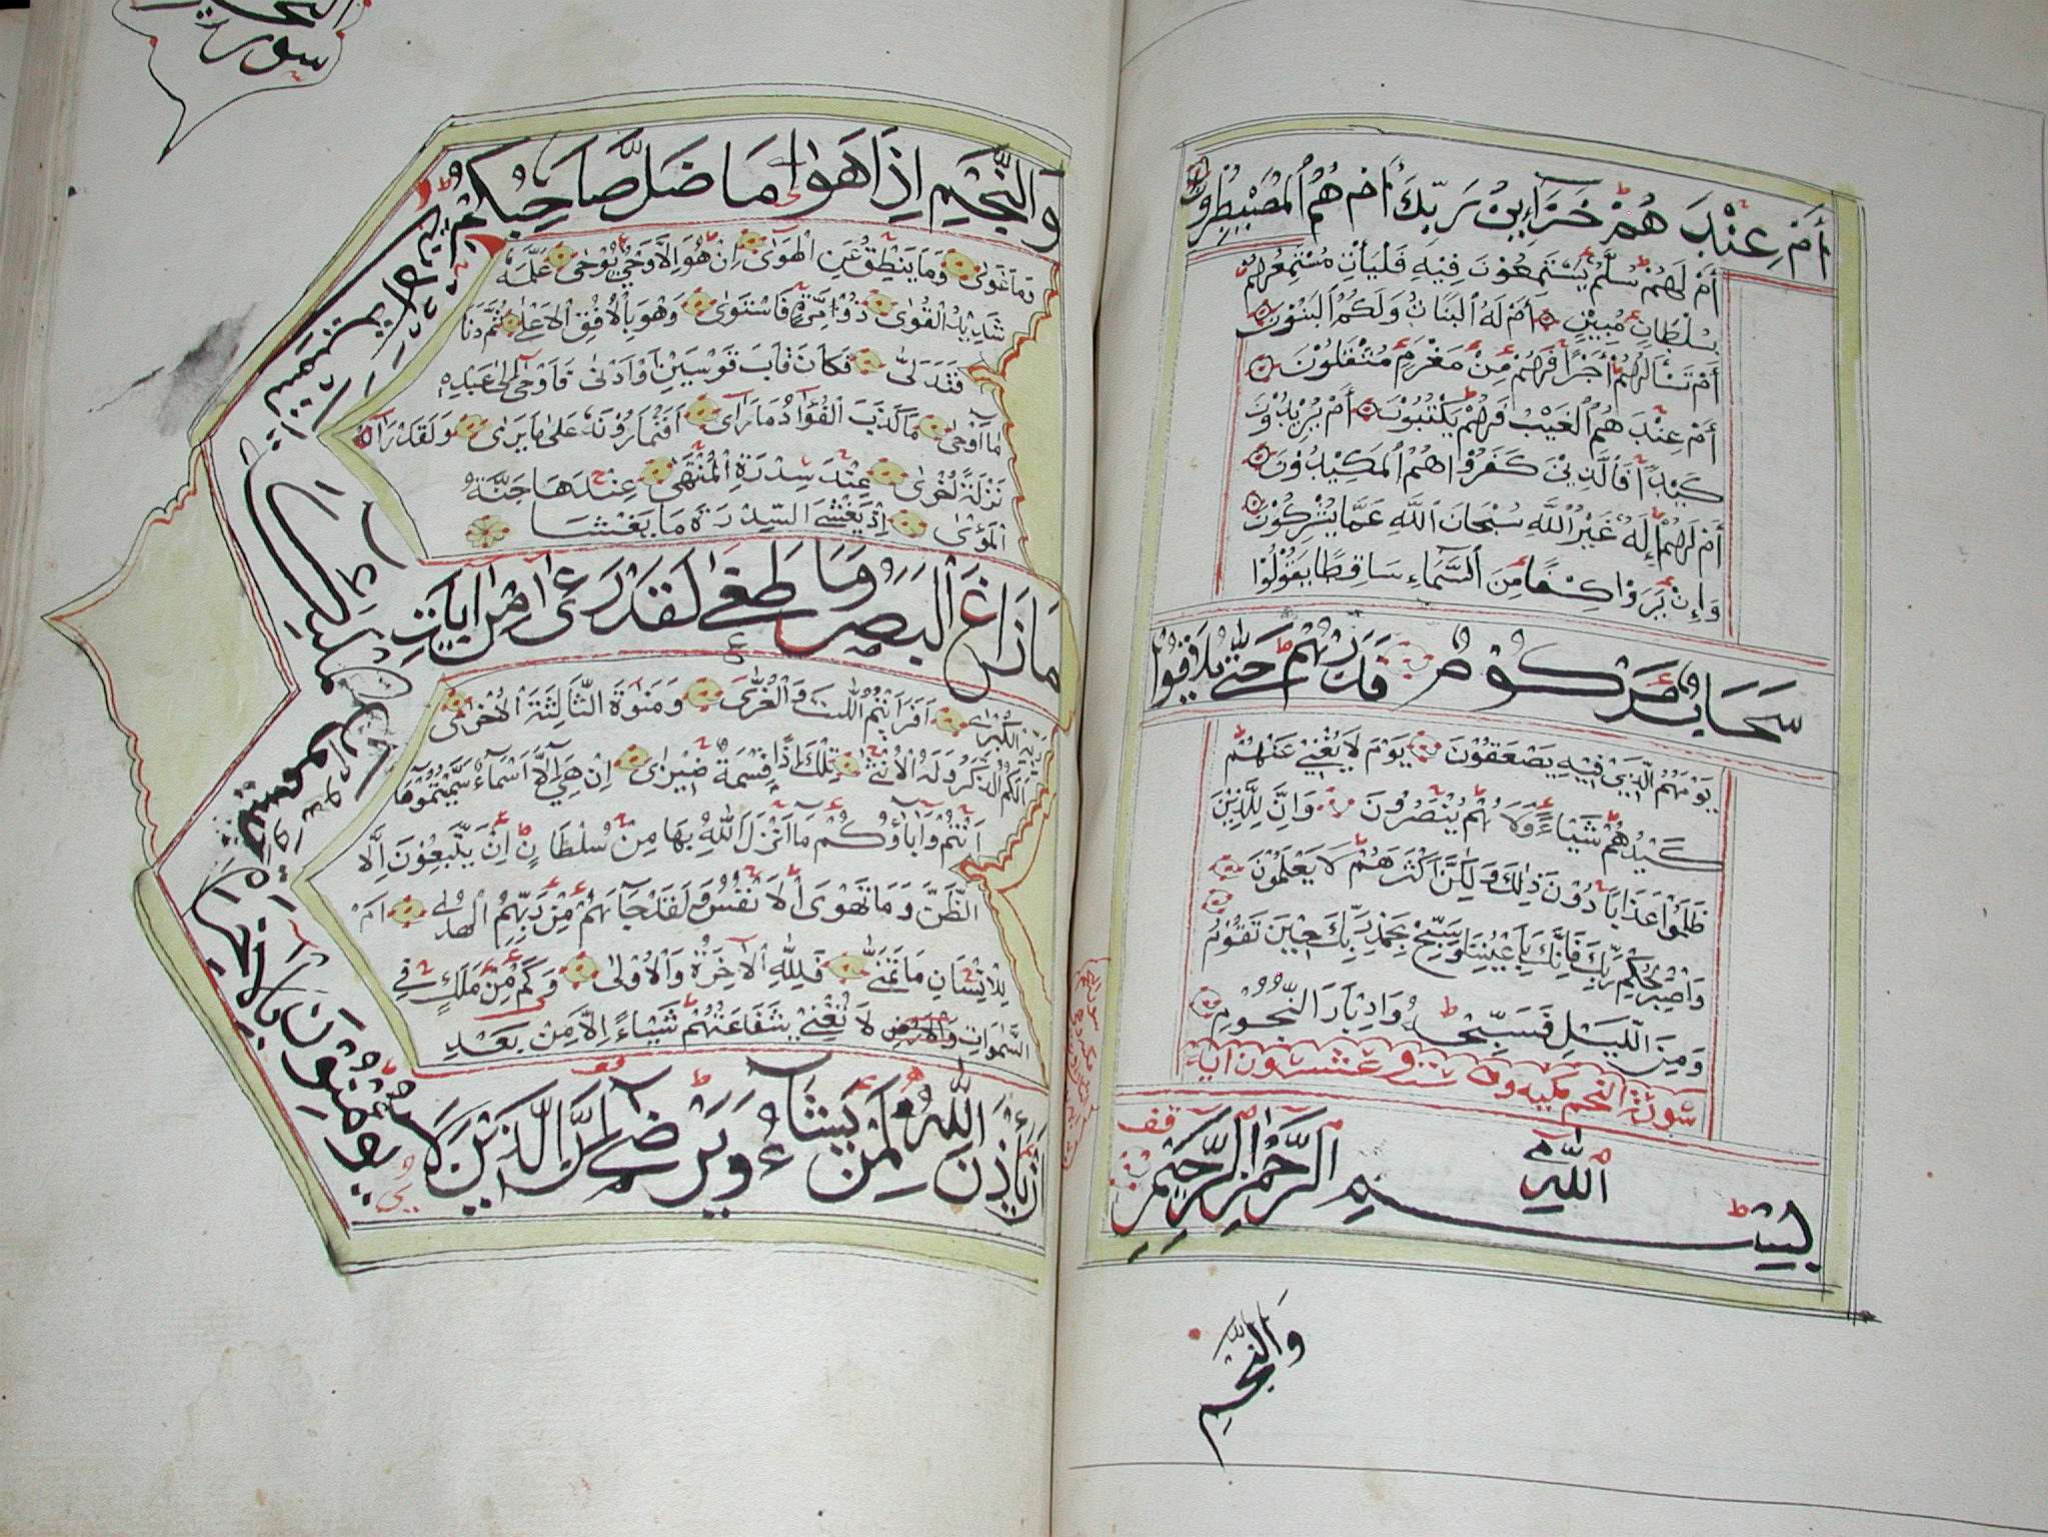 أَمْ عِنْدَ هُمْ خَزَآءِنُ رَبِّكَ أَمْ هُمُ ٱلْمُصَيْطِرُونَ
أَمْ لَهُمْ سُلَّمٌ يَسْتَمِعُوْنَ فِيْهِ فَلْيَأْتِ مُسْتَمِعُهُمْ
بِسُلْطَانٍ مُبِيْنٍ أَمْ لَهُ ٱلبَنَاتُ وَلَكُمُ ٱلبَنُوْنَ
أَمْ تَسْأَلُهُمْ أَجْرًا فَهُمْ مِنْ مَغْرَمٍ مُثْقَلُوْنَ
أَمْ عِنْدَ هُمُ ٱلغَيْبُ فَهُمْ يَكْتُبُوْنَ أَمْ يُرِيْدُوْنَ
كَيْدًا فَٱلَّذِيْنَ كَفَرُوْا هُمُ ٱلمَكِيْدُوْنَ
أَمْ لَهُمْ إِلَهٌ غَيْرُ ٱللَّهِ سُبْحَانَ ٱللَّهِ عَمَّا يُشْرِكُوْنَ
وَإِنْ يَرَوْا كِسْفًا مِنَ ٱلسَّمَاءِ سَاقِطًا يَقُوْلُوْا
سَحَابٌ مَرْكُوْمٌ فَذَرْهُمْ حَتَّىٰ يُلَاقُوْا
يَوْمَهُمُ ٱلَّذِيْ فِيْهِ يَصْعَقُوْنَ يَوْمَ لَا يُغْنِيْ عَنْهُمْ
كَيْدُهُمْ شَيْاءً وَلَا هُمْ يُنْصَرُوْنَ وَاِنَّ لِلَّذِيْنَ
ظَلَمُوْا عَذَابًا دُوْنَ ذٰلِكَ وَلٰكِنَّ اَكْثَرَهُمْ لَا يَعْلَمُوْنَ
وَاصْبِرْ لِحُكْمِ رَبِّكَ فَاِنَّكَ بِاَعْيُنِنَا وَسَبِّحْ بِحَمْدِ رَبِّكَ حِيْنَ تَقُوْمُ
وَمِنَ الَّيْلِ فَسَبِّحْهُ وَاِدْبَارَ النُّجُوْمِ
سُوْرَةُ النجم مكيه وهي ستون آية
بِسْمِ ٱللَّهِ ٱلرَّحْمٰنِ ٱلرَّحِيْمِ
وَالنَّجْمِ
سورة
وَالنَّجْمِ اِذَا هَوٰى مَا ضَلَّ صَاحِبُكُمْ
وَمَا غَوٰى وَمَا يَنْطِقُ عَنِ الْهَوٰى اِنْ هُوَ اِلَّا وَحْيٌ يُوْحٰى عَلَّمَهٗ
شَدِيْدُ الْقُوٰى ذُوْ مِرَّةٍ فَاسْتَوٰى وَهُوَ بِالْاُفُقِ الْاَعْلٰى ثُمَّ دَنَا
فَتَدَلّٰى فَكَانَ قَابَ قَوْسَيْنِ اَوْ اَدْنٰى فَاَوْحٰى اِلٰى عَبْدِهٖ
مَا اَوْحٰى مَا كَذَبَ الْفُؤَادُ مَا رَاٰى اَفَتُمَارُوْنَهٗ عَلٰى مَا يَرٰى وَلَقَدْ رَاٰهُ
نَزْلَةً اُخْرٰى عِنْدَ سِدْرَةِ الْمُنْتَهٰى عِنْدَهَا جَنَّةُ
الْمَأْوٰى اِذْ يَغْشَى السِّدْرَةَ مَا يَغْشَا
مَا زَاغَ الْبَصَرُ وَمَا طَغٰى لَقَدْ رَاٰى مِنْ اٰيَاتِ
رَبِّهِ الْكُبْرٰى اَفَرَاَيْتُمُ اللّٰتَ وَالْعُزّٰى وَمَنٰوةَ الثَّالِثَةَ الْاُخْرٰى
اَلَكُمُ الذَّكَرُ وَلَهُ الْاُنْثٰى تِلْكَ اِذًا قِسْمَةٌ ضِيْزٰى اِنْ هِيَ اِلَّا اَسْمَاءٌ سَمَّيْتُمُوْهَا
اَنْتُمْ وَاٰبَاؤُكُمْ مَا اَنْزَلَ اللّٰهُ بِهَا مِنْ سُلْطَانٍ اِنْ يَتَّبِعُوْنَ اِلَّا
الظَّنَّ وَمَا تَهْوَى الْاَنْفُسُ وَلَقَدْ جَاءَهُمْ مِنْ رَبِّهِمُ الْهُدٰى اَمْ
لِلْاِنْسَانِ مَا تَمَنّٰى فَلِلّٰهِ الْاٰخِرَةُ وَالْاُوْلٰى وَكَمْ مِنْ مَلَكٍ فِي
السَّمٰوَاتِ وَالْاَرْضِ لَا تُغْنِيْ شَفَاعَتُهُمْ شَيْاءً اِلَّا مِنْ بَعْدِ
اَنْ يَأْذَنَ اللّٰهُ لِمَنْ يَشَاءُ وَيَرْضٰى اِنَّ الَّذِيْنَ لَا
يُؤْمِنُوْنَ بِالْاٰخِرَةِ لَيُسَمُّوْنَ